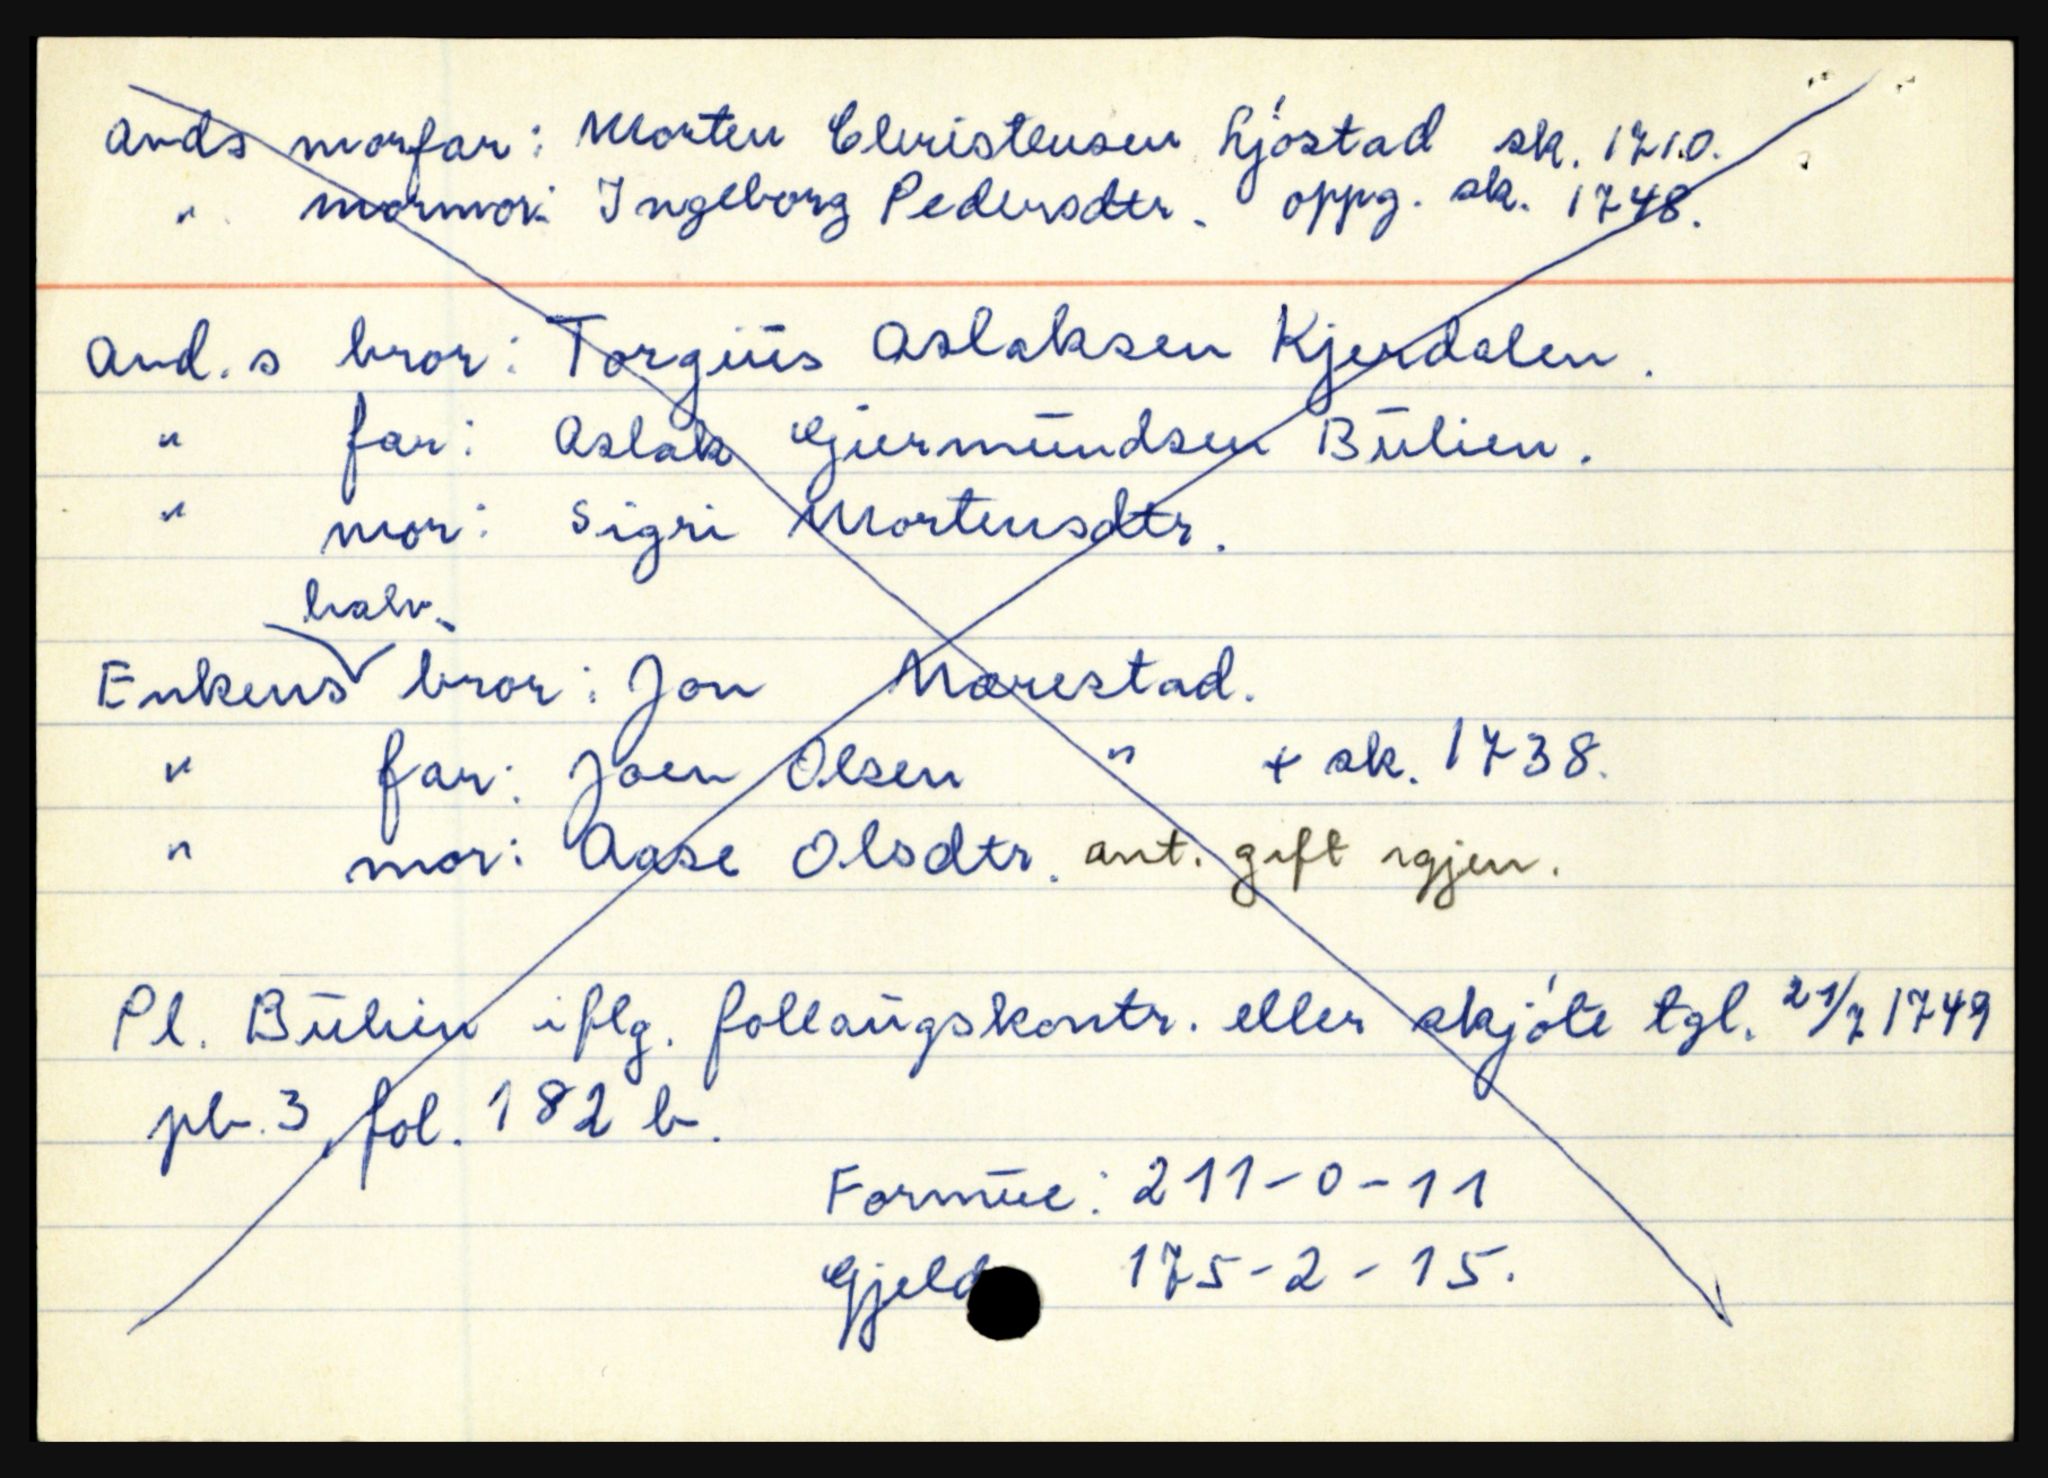 Avds morfar: Morten Christensen Ljøstad sk. 1710.
" mormor: Ingeborg Pedersdtr. oppg. sk. 1748.
Avd.s bror: Torgŭs Aslaksen Kjerdalen.
" far: Aslak Giermŭndsen Bŭlien.
" mor: Sigri Mortensdtr.
halv-
Enkens bror: Jon Mærestad.
" far: Joen Olsen " + sk. 1738.
" mor: Aase Olsdtr. ant. gift igjen.
Pl. Bŭlien iflg. follaŭgskontr. eller skjøte tgl. 21/7 1749
pb. 3, fol. 182 b.
Formŭe: 211-0-11
Gjeld 175-2-15.